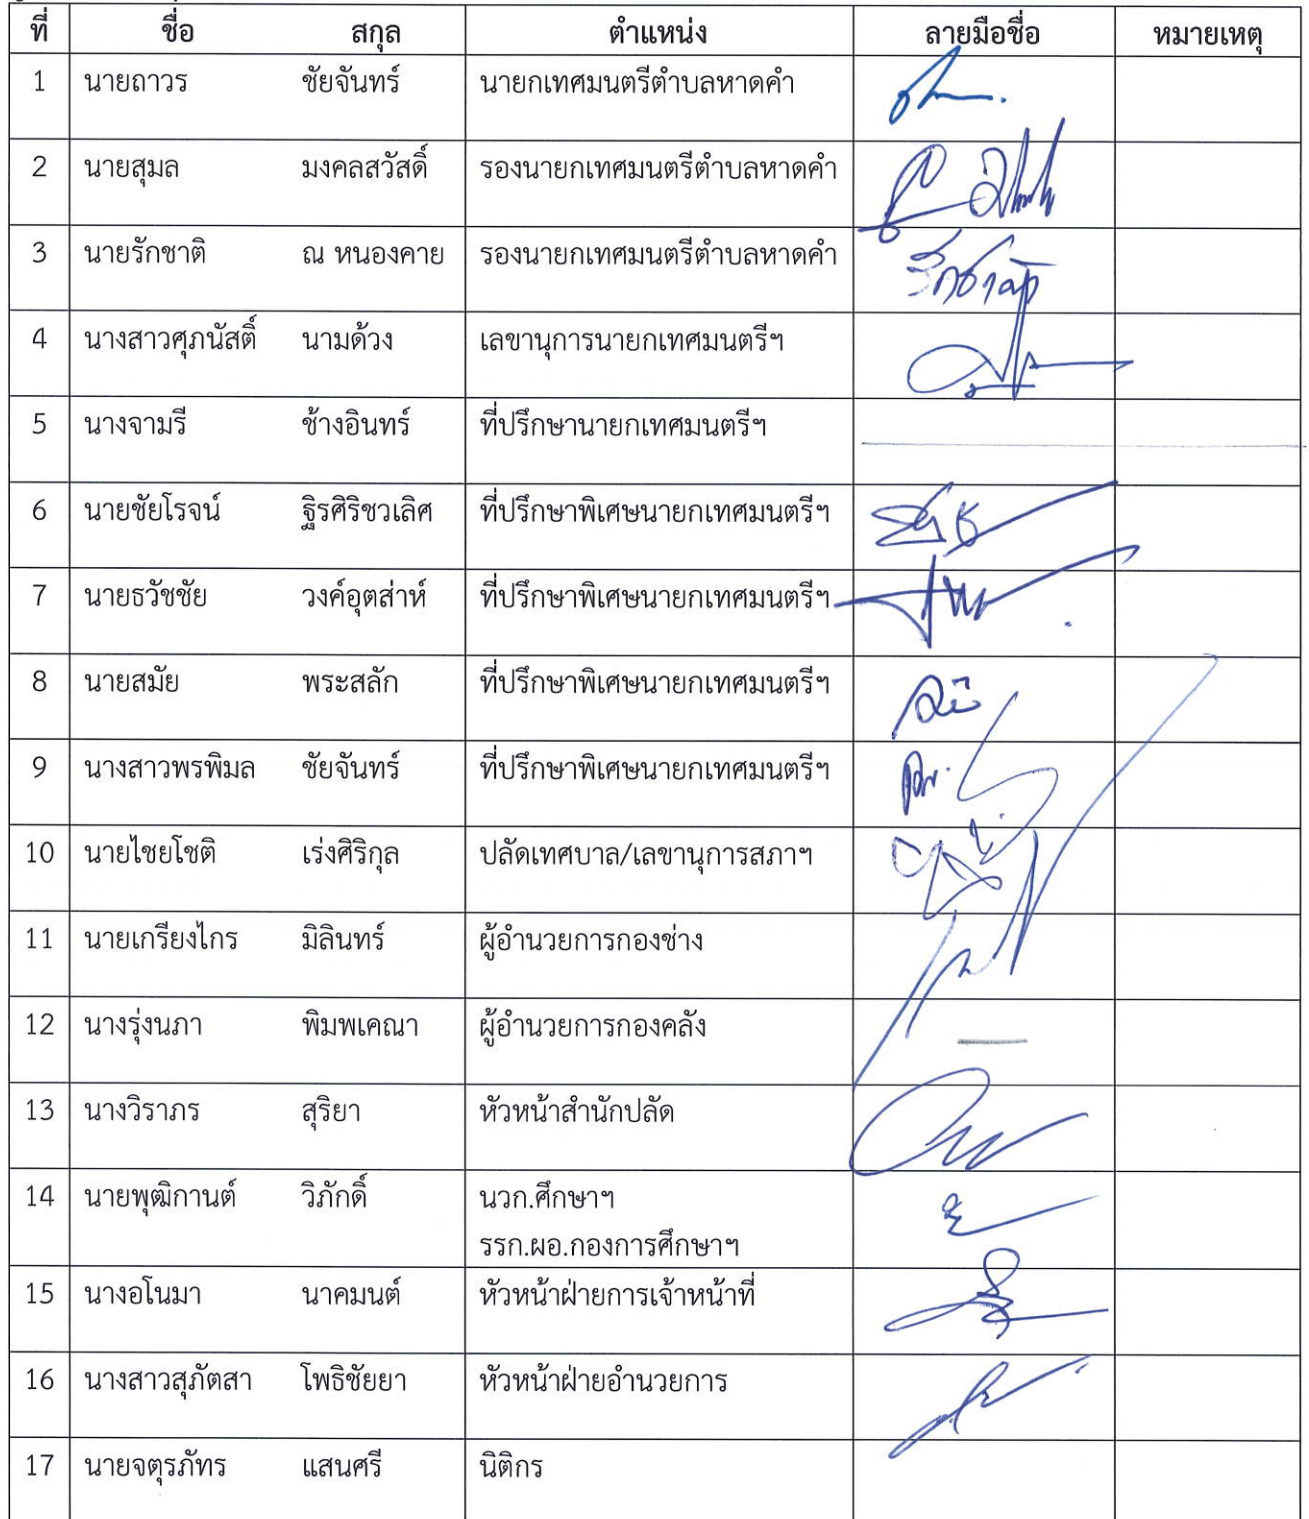 ที่ ชื่อ สกุล ตำแหน่ง ลายมือชื่อ หมายเหตุ
1 นายถาวร ชัยจันทร์ นายกเทศมนตรีตำบลหาดคำ
2 นายสุมล มงคลสวัสดิ์ รองนายกเทศมนตรีตำบลหาดคำ
3 นายรักชาติ ณ หนองคาย รองนายกเทศมนตรีตำบลหาดคำ
4 นางสาวศุภนัสติ์ นามด้วง เลขานุการนายกเทศมนตรีฯ
5 นางจามรี ช้างอินทร์ ที่ปรึกษานายกเทศมนตรีฯ
6 นายชัยโรจน์ ฐิรศิริชวเลิศ ที่ปรึกษาพิเศษนายกเทศมนตรีฯ
7 นายธวัชชัย วงค์อุตส่าห์ ที่ปรึกษาพิเศษนายกเทศมนตรีฯ
8 นายสมัย พระสลัก ที่ปรึกษาพิเศษนายกเทศมนตรีฯ
9 นางสาวพรพิมล ชัยจันทร์ ที่ปรึกษาพิเศษนายกเทศมนตรีฯ
10 นายไชยโชติ เร่งศิริกุล ปลัดเทศบาล/เลขานุการสภาฯ
11 นายเกรียงไกร มิลินทร์ ผู้อำนวยการกองช่าง
12 นางรุ่งนภา พิมพเคณา ผู้อำนวยการกองคลัง
13 นางวิราภร สุริยา หัวหน้าสำนักปลัด
14 นายพุฒิกานต์ วิภักดิ์ นวก.ศึกษาฯ
รรก.ผอ.กองการศึกษาฯ
15 นางอโนมา นาคมนต์ หัวหน้าฝ่ายการเจ้าหน้าที่
16 นางสาวสุภัตสา โพธิชัยยา หัวหน้าฝ่ายอำนวยการ
17 นายจตุรภัทร แสนศรี นิติกร